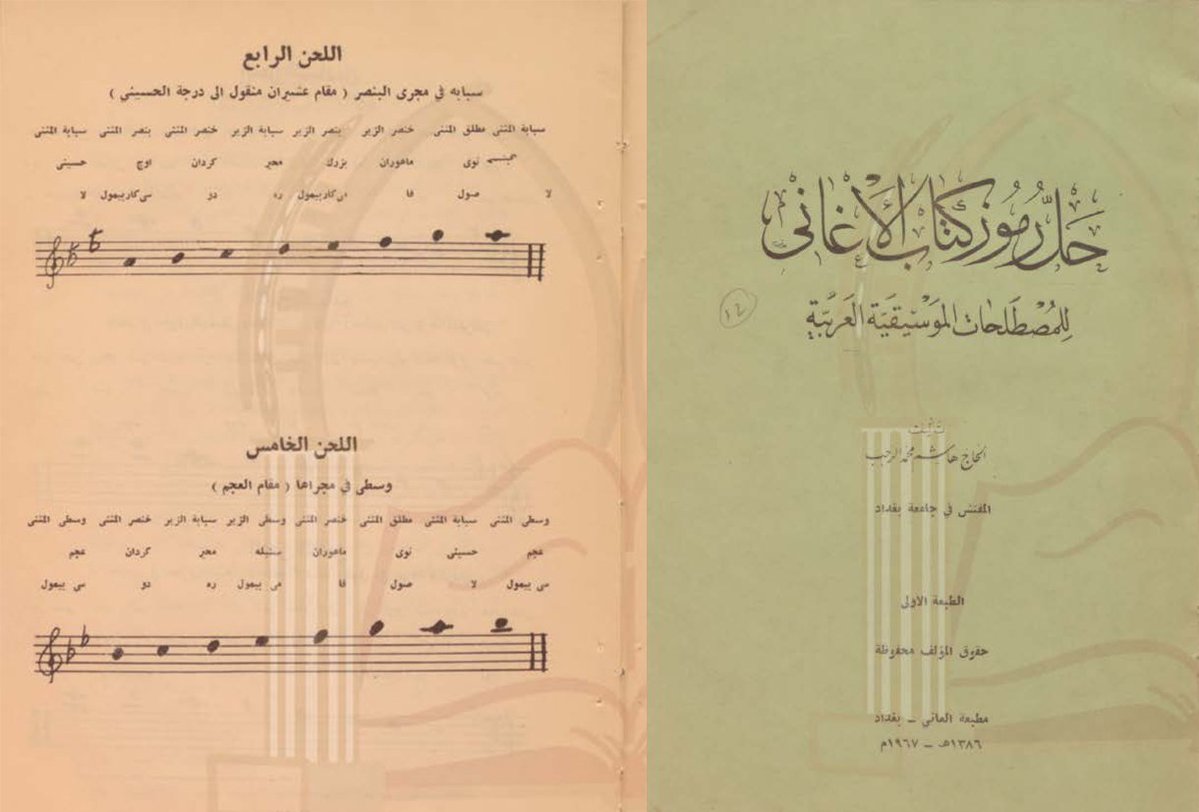 حَلُّ رُمُوز كتَابِ الأَغَانى
لِلمُصْطَلَحَات المُوَسْيِقيَّة العَرَبيَّةِ
١٤
تأليف
الحاج هاشم محمد الرجب
المفتش في جامعة بغداد
الطبعة الاولى
حقوق المؤلف محفوظة
مطبعة العاني – بغداد
١٣٨٦هـ – ١٩٦٧م
اللحن الرابع
سبابه في مجرى البنصر ( مقام عشيران منقول الى درجة الحسيني )
سبابة المثنى مطلق المثنى خنصر الزير بنصر الزير سبابة الزير خنصر المثنى بنصر المثنى سبابة المثنى
نوى ماهوران بزرك محير كردان اوج حسيني
لا صول فا مي كاربيمول ره دو سي كاربيمول لا
اللحن الخامس
وسطى في مجراها ( مقام العجم )
وسطى المثنى سبابة المثنى مطلق المثنى خنصر المثنى وسطى الزير سبابة الزير خنصر المثنى وسطى المثنى
عجم حسيني نوى ماهوران سنبله محير كردان عجم
سي بيمول لا صول فا مي بيمول ره دو سي بيمول